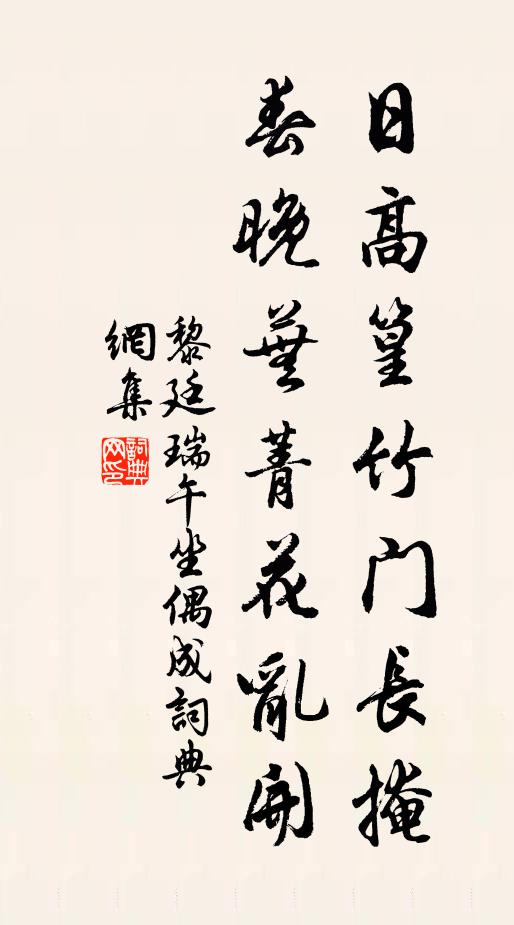 日高篁竹門長掩
春晚蕪菁花亂開
黎廷瑞午坐偶成詞典
網集
詞典網印